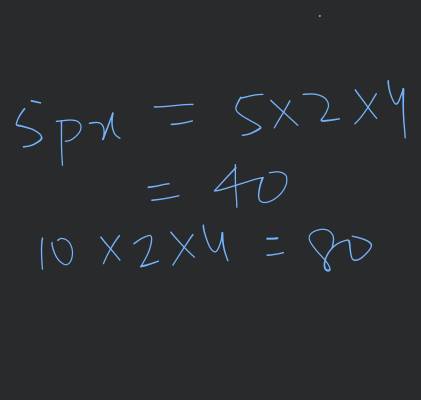 5px = 5×2×4
= 40
10×2×4 = 80